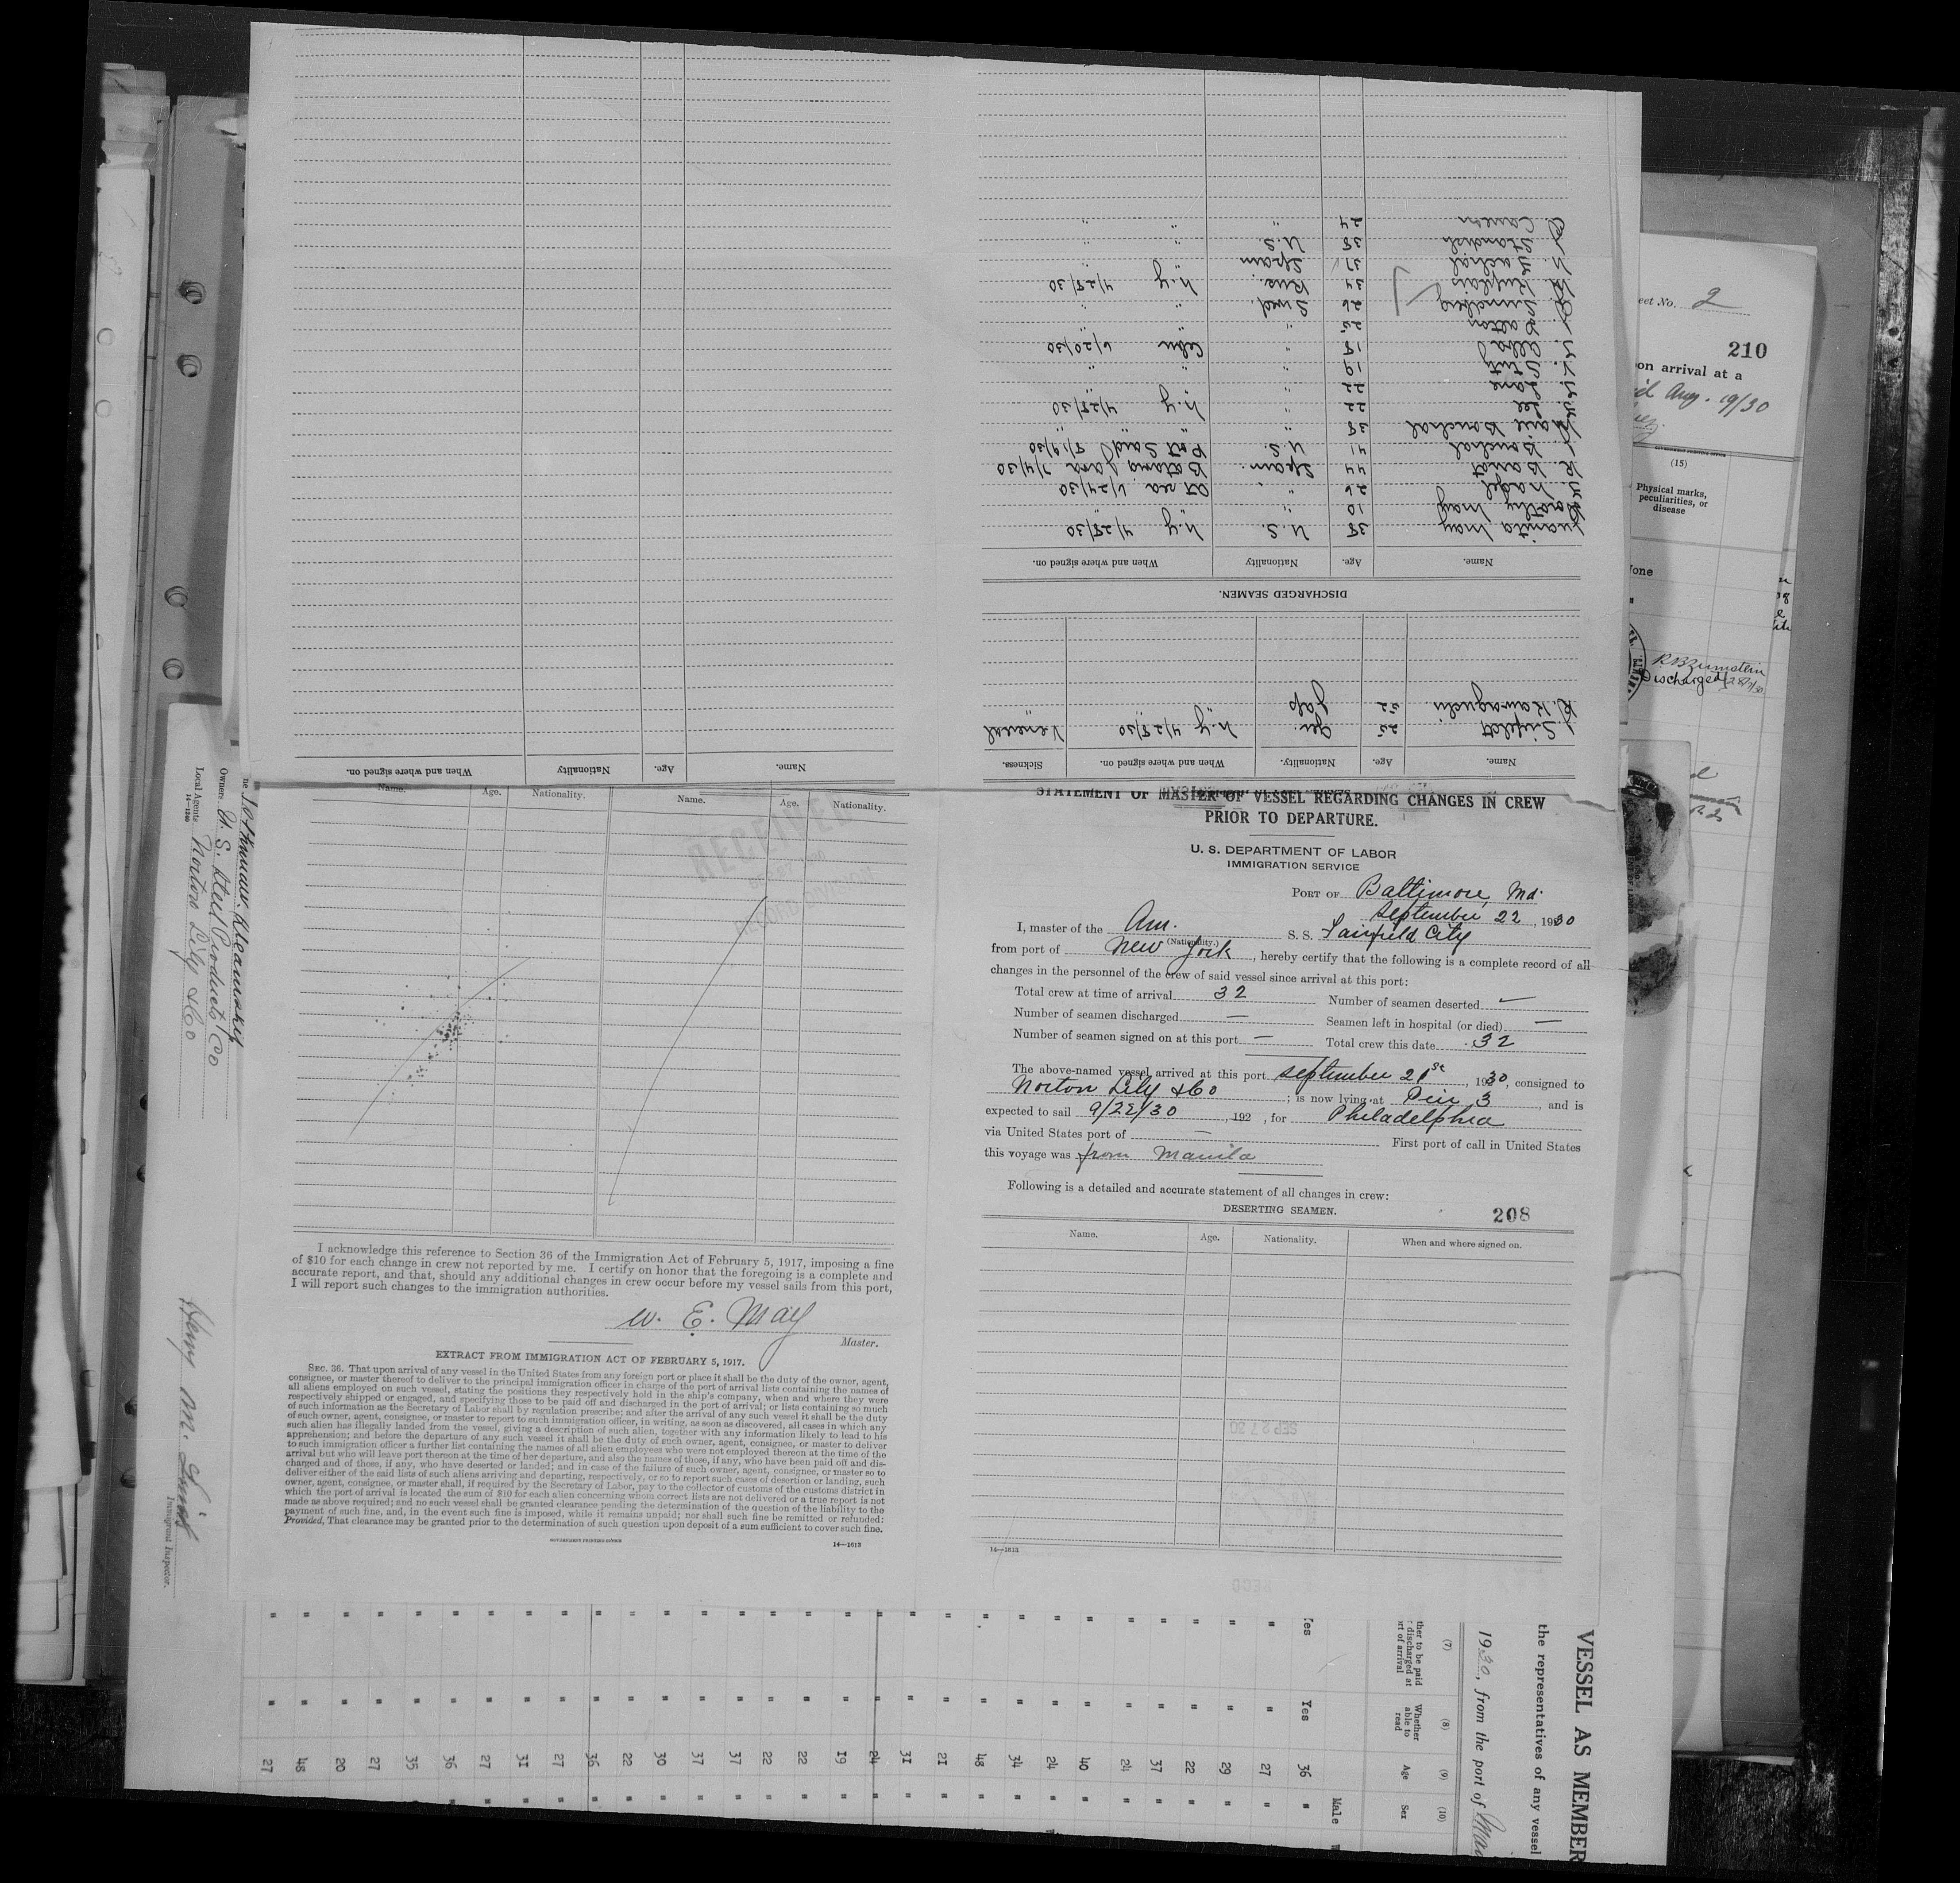 STATEMENT OF MASTER OF VESSEL REGARDING CHANGES IN CREW
PRIOR TO DEPARTURE.
U. S. DEPARTMENT OF LABOR
IMMIGRATION SERVICE
PORT OF Baltimore, Md.
September 22, 1930
I, master of the Am. S. S. Fairfield City
(Nationality.)
from port of New York, hereby certify that the following is a complete record of all
changes in the personnel of the crew of said vessel since arrival at this port:
Total crew at time of arrival 32 Number of seamen deserted —
Number of seamen discharged — Seamen left in hospital (or died) —
Number of seamen signed on at this port — Total crew this date 32
The above-named vessel arrived at this port September 21st, 1930, consigned to
Norton Lily & Co; is now lying at Pier 3, and is
expected to sail 9/22/30, 192 , for Philadelphia
via United States port of — First port of call in United States
this voyage was from Manila
Following is a detailed and accurate statement of all changes in crew:
DESERTING SEAMEN. 208
Name. Age. Nationality. When and where signed on.
SEP 27 30
14—1613
Name. Age. Nationality. Name. Age. Nationality.
RECEIVED
RECORD DIVISION
I acknowledge this reference to Section 36 of the Immigration Act of February 5, 1917, imposing a fine
of $10 for each change in crew not reported by me. I certify on honor that the foregoing is a complete and
accurate report, and that, should any additional changes in crew occur before my vessel sails from this port,
I will report such changes to the immigration authorities.
W. E. May
Master.
EXTRACT FROM IMMIGRATION ACT OF FEBRUARY 5, 1917.
SEC. 36. That upon arrival of any vessel in the United States from any foreign port or place it shall be the duty of the owner, agent,
consignee, or master thereof to deliver to the principal immigration officer in charge of the port of arrival lists containing the names of
all aliens employed on such vessel, stating the positions they respectively hold in the ship's company, when and where they were
respectively shipped or engaged, and specifying those to be paid off and discharged in the port of arrival; or lists containing so much
of such information as the Secretary of Labor shall by regulation prescribe; and after the arrival of any such vessel it shall be the duty
of such owner, agent, consignee, or master to report to such immigration officer, in writing, as soon as discovered, all cases in which any
such alien has illegally landed from the vessel, giving a description of such alien, together with any information likely to lead to his
apprehension; and before the departure of any such vessel it shall be the duty of such owner, agent, consignee, or master to deliver
to such immigration officer a further list containing the names of all alien employees who were not employed thereon at the time of the
arrival but who will leave port thereon at the time of her departure, and also the names of those, if any, who have been paid off and dis-
charged and of those, if any, who have deserted or landed; and in case of the failure of such owner, agent, consignee, or master so to
deliver either of the said lists of such aliens arriving and departing, respectively, or so to report such cases of desertion or landing, such
owner, agent, consignee, or master shall, if required by the Secretary of Labor, pay to the collector of customs of the customs district in
which the port of arrival is located the sum of $10 for each alien concerning whom correct lists are not delivered or a true report is not
made as above required; and no such vessel shall be granted clearance pending the determination of the question of the liability to the
payment of such fine, and, in the event such fine is imposed, while it remains unpaid; nor shall such fine be remitted or refunded:
Provided, That clearance may be granted prior to the determination of such question upon deposit of a sum sufficient to cover such fine.
GOVERNMENT PRINTING OFFICE 14—1613
Name. Age. Nationality. When and where signed on. Sickness.
25 Ger. N.Y 4/28/30 Venereal
K. Kawaguchi 52 Jap "
DISCHARGED SEAMEN.
Name. Age. Nationality When and where signed on.
Juanita May 38 U.S. N.Y 4/28/30
Dorothy May 10 " "
Nagel 26 " At sea 6/24/30
Barrot 44 Spain. Batavia Java 7/4/30
Bouchal 41 U.S. Port Said 8/19/30
Marie Bouchal 38 " "
Lee 22 " N.Y 4/28/30
Lane 22 " "
Utuy 19 " "
Alba 18 " Cebu 6/20/30
Dalton 25 " "
Lundberg 26 Swed. " "
34 Rus. N.Y 4/28/30
37 Spain " "
Standish 38 U.S. " "
24 " " "
Name. Age. Nationality When and where signed on.
Sheet No. 2
210
on arrival at a
Aug. 19/30
(15)
Physical marks,
peculiarities, or
disease
None
"
R B Zumstein
Discharged
Owners U. S. Steel Products Co
Local Agents Norton Lily & Co
14—1240
Henry M.
Immigrant Inspector.
VESSEL AS MEMBER
the representatives of any vessel
1930, from the port of
(7) (8) (9) (10)
Whether able to read
Age
Sex
Yes Yes 36 " Male
" " 27 "
" " 29 "
" " 22 "
" " 37 "
" " 24 "
" " 40 "
" " 24 "
" " 34 "
" " 48 "
" " 21 "
" " 31 "
" " 24 "
" " 19 "
" " 22 "
" " 22 "
" " 37 "
" " 37 "
" " 30 "
" " 22 "
" " 36 "
" " 27 "
" " 31 "
" " 27 "
" " 36 "
" " 35
" " 27
" " 20
" " 48
" " 27